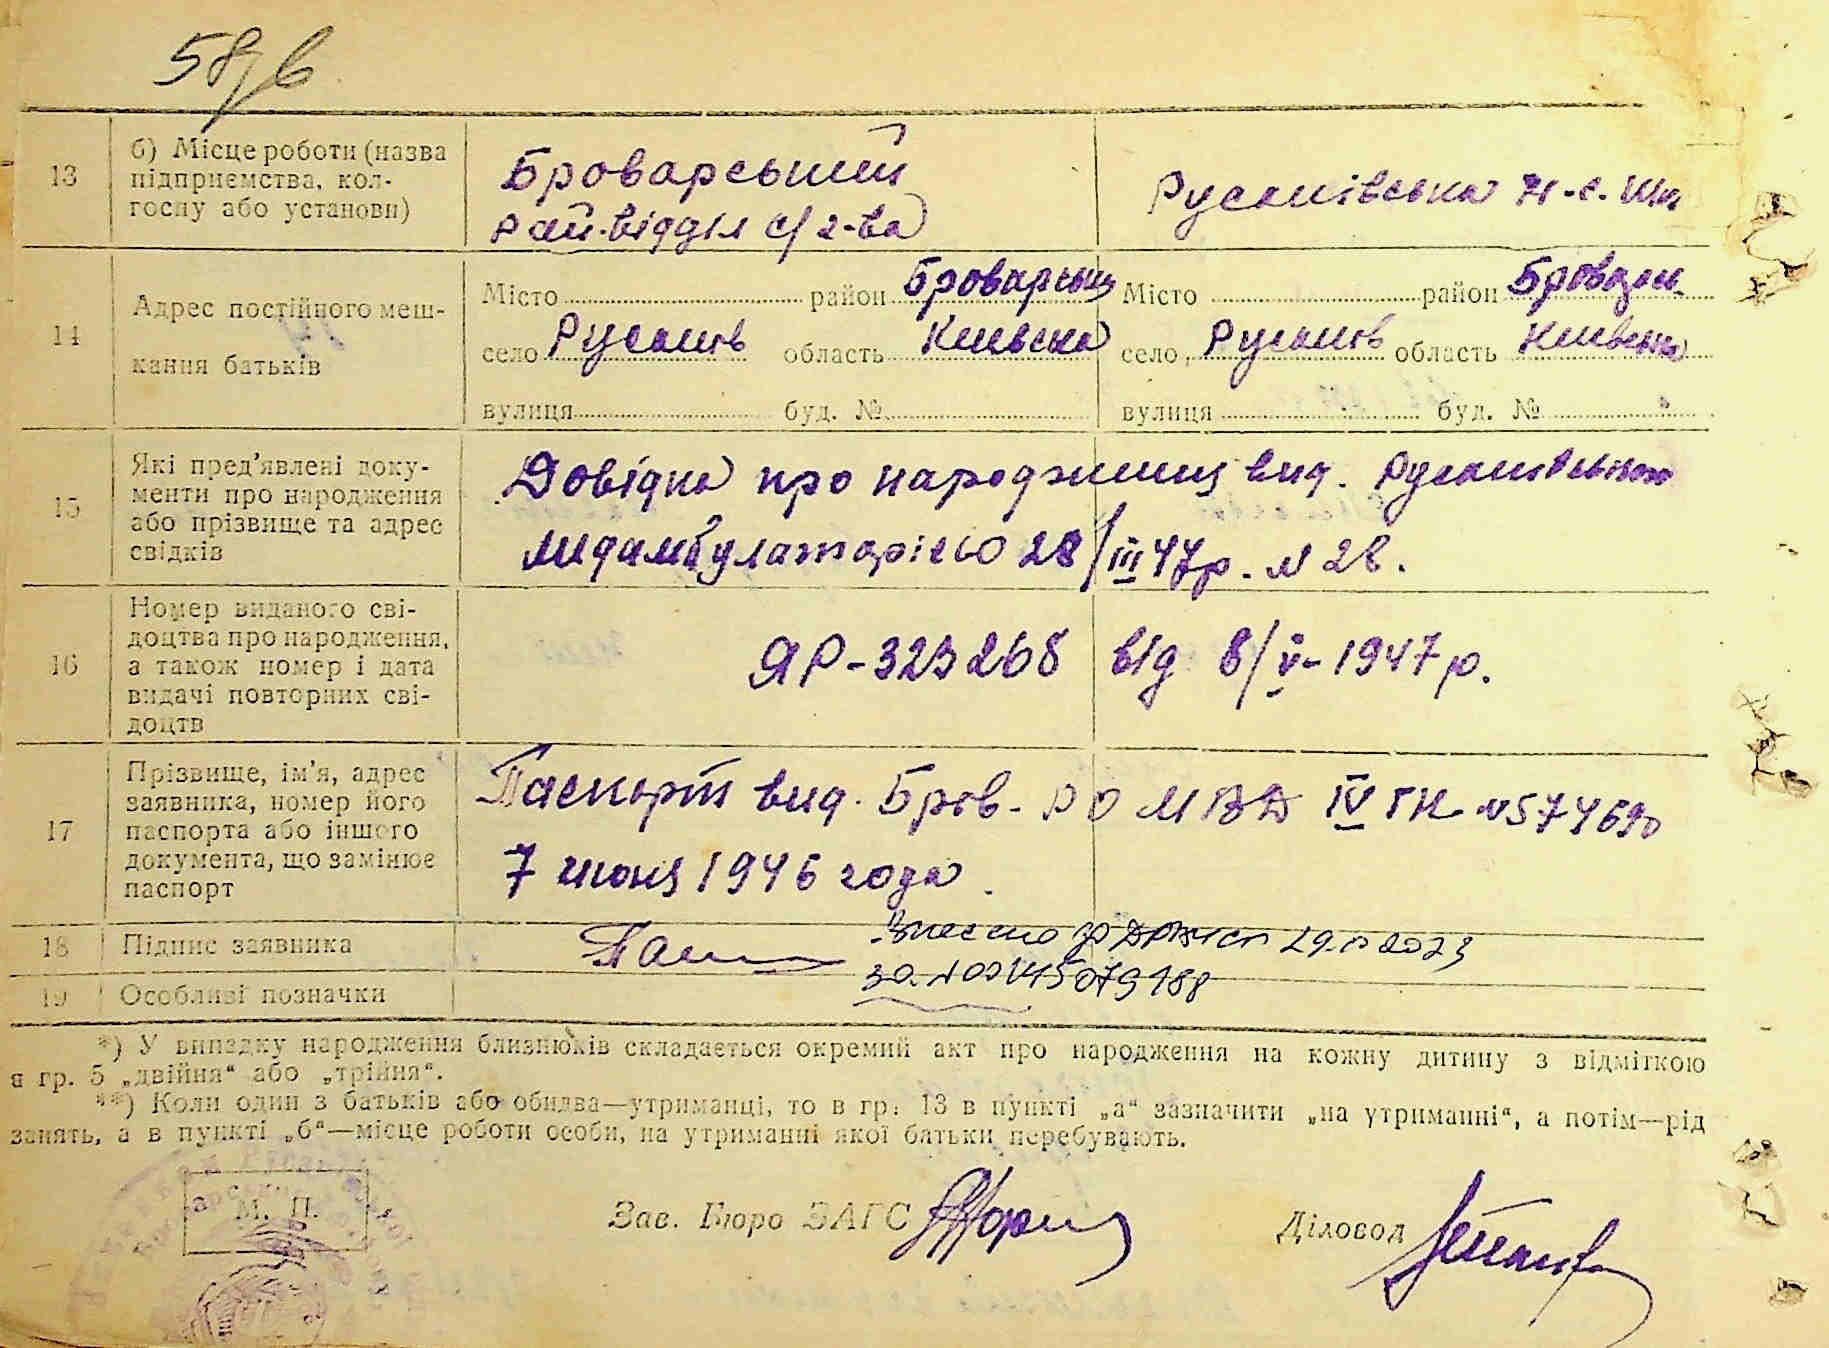 58зв
13 б) Місце роботи (назва підприємства, кол-госпу або установи)
Броварський
Рай.відділ с/г-ва
Русанівська н-с. шк
14 Адрес постійного меш-
кання батьків
Місто район Броварськ Місто район Бровдськ
село Русанів область Київська село Русанів область Київська
вулиця буд. № вулиця буд. №
15 Які пред'явлені доку-
менти про народження
або прізвище та адрес
свідків
Довідка про народження вид. Русанівською
медамбулаторією 28/III 47р. № 28.
16 Номер виданого сві-
доцтва про народження,
а також номер і дата
видачі повторних сві-
доцтв
ЯР-323268 від 8/V-1947 р.
17 Прізвище, ім'я, адрес
заявника, номер його
паспорта або іншого
документа, що замінює
паспорт
Паспорт вид. Бров- РО МВД IV ГК №574690
7 июня 1946 года.
18 Підпис заявника
Внесено до 2023
19 Особливі позначки
за №00145079188
*) У випадку народження близнюків складається окремий акт про народження на кожну дитину з відміткою
в гр. 5 „двійня“ або „трійня“.
**) Коли один з батьків або обидва—утриманці, то в гр. 13 в пункті „а“ зазначити „на утриманні“, а потім—рід
занять, а в пункті „б“—місце роботи особи, на утриманні якої батьки перебувають.
М. П.
Зав. Бюро ЗАГС
Діловод